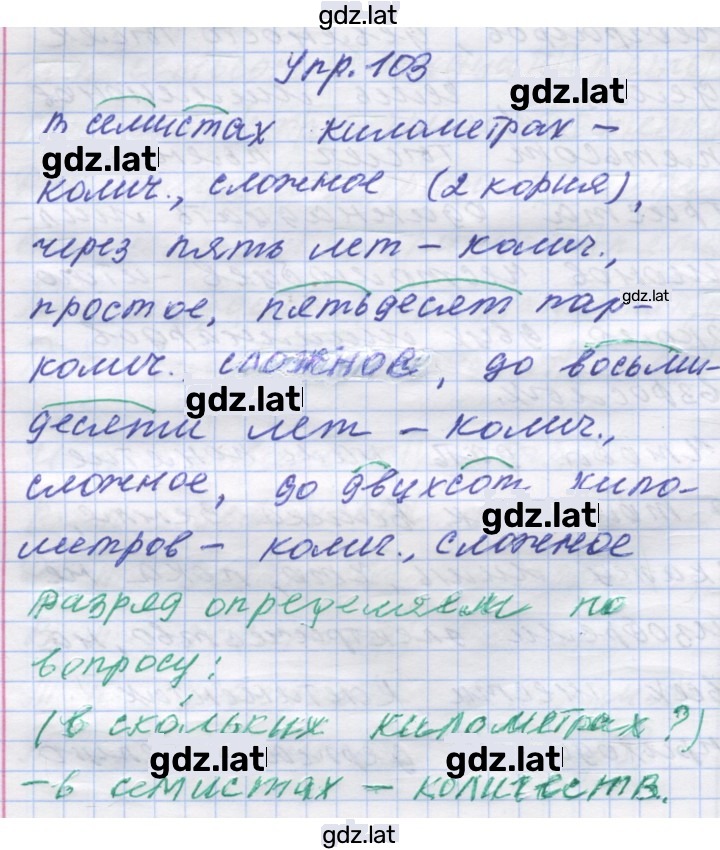 gdz.lat
Упр. 103
gdz.lat
в семистах километрах –
gdz.lat
колич., сложное (2 корня),
через пять лет – колич.,
gdz.lat
простое, пятьдесят пар –
колич. сложное, до восьми-
gdz.lat
десяти лет – колич.,
сложное, до двухсот кило-
gdz.lat
метров – колич., сложное
Разряд определяем по
вопросу:
(в скольких километрах?)
gdz.lat gdz.lat
– в семистах – количеств.
gdz.lat